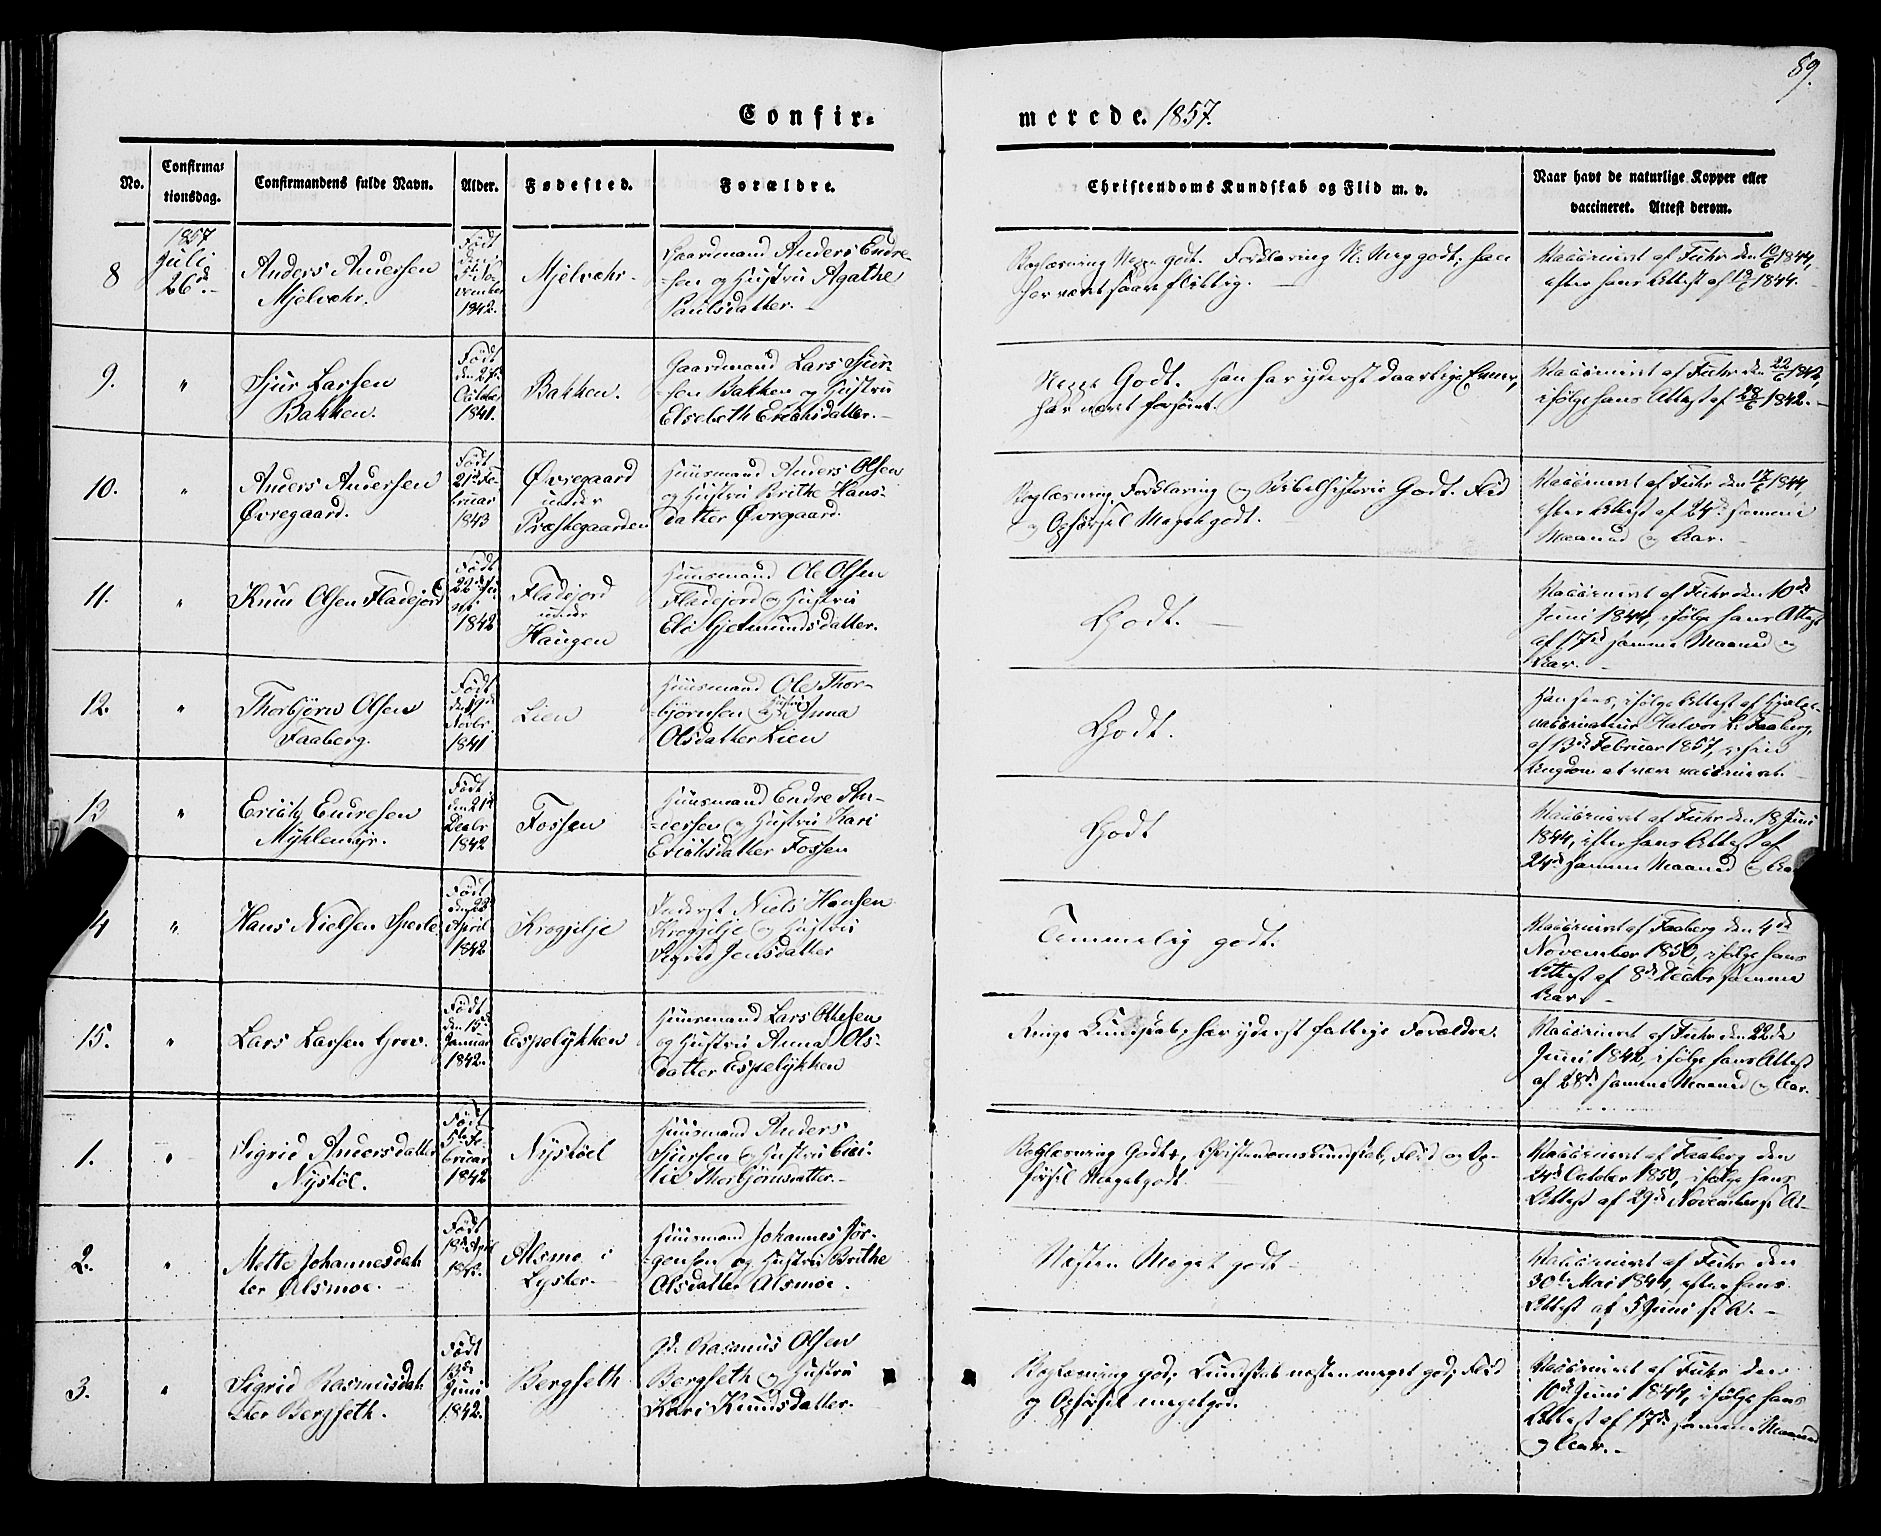 89.
Confir-
merede. 1857.
No.
Confirma-
tionsdag.
Confirmandens fulde Navn.
Alder.
Fødested.
Forældre.
Christendoms Kundskab og Flid m. v.
Naar havt de naturlige Kopper eller
vaccineret. Attest derom.
8
1857
Juli
26d
Anders Andersen
Mjelvæhr.
Født
vember
1842.
Mjelvæhr.
Gaardmand Anders Endre-
sen og Hustru Agathe
Paulsdatter.
Boglæsning godt. Forklaring Meget godt; han
har været saare flittig.
Vaccineret af Fuhr den 1844,
efter hans Attest af 1844.
9.
"
Sjur Larsen
Bakken.
Født
October
1841.
Bakken.
Gaardmand Lars Sjur-
sen Bakken og Hustru
Elsebeth Erichsdatter.
Godt. Han har yderst daarlige Evner,
har været forsømt.
Vaccineret af Fuhr den 22/6 1842,
ifølge hans Attest af 28/6 1842.
10.
"
Anders Andersen
Øvregaard.
Født
21d Fe-
bruar
1843
Øvregaard
under
Præstegaarden
Huusmand Anders Olsen
og Hustru Brithe Hans-
datter Øvrgaard.
Boglæsning, Forklaring og Bibelhistorie Godt. Flid
og Opførsel Meget godt.
Vaccineret af Fuhr den 17/6 1844,
efter Attest af 24d samme
Maaned og Aar.
11.
"
Knud Olsen Fladejord
Født
22d
1842
Fladejord
under
Haugen
Huusmand Ole Olsen
Fladejord og Hustru
Eli Gjetmundsdatter.
Godt.
Vaccineret af Fuhr den 10de
Juni 1844, ifølge hans Attest
af 17d samme Maaned og
Aar.
12.
"
Thorbjørn Olsen
Faaberg.
Født
Novbr
1841
Lien
Huusmand Ole Thor-
bjørnsen og Hustru Anna
Olsdatter Lien
Godt.
Han sees, ifølge Attest af Hjelpe-
vaccinateur Halvor L. Faaberg,
af 13d Februar 1857, i sin
Ungdom at være vaccineret.
13
"
Erich Endresen
Myklemyr.
Født
den 21d
Decbr
1842
Fossen
Huusmand Endre An-
dersen og Hustru Kari
Erichsdatter Fossen
Godt
Vaccineret af Fuhr den 18 Juni
1844, efter hans Attest af
24d samme Maaned og Aar
4
"
Hans Nielsen Sperle
Født
April
1842
Krogjilje
Inderst Niels Hansen
Krogjilje og Hustru
Sigrid Jensdatter
Temmelig godt.
Vaccineret af Faaberg den 4de
November 1850, ifølge hans
Attest af 8de Decbr samme
Aar.
15.
"
Lars Larsen Grov.
Født
den 15d
Januar
1842.
Espelykken
Huusmand Lars Ottesen
og Hustru Anna Ols-
datter Espelykken
Ringe Kundskab, har yderst fattige Forældre.
Vaccineret af Fuhr den 22de
Juni 1842, ifølge hans Attest
af 28d samme Maaned og Aar.
1.
"
Sigrid Andersdatter
Nystøl.
Født
5te Fe-
bruar
1842
Nystøel
Huusmand Anders
Sjursen og Hustru Cici-
lie Thorbjørnsdatter.
Boglæsning Godt, Christendomskundskab, Flid og Op-
førsel Megetgodt.
Vaccineret af Faaberg den
24d October 1850, ifølge hans
Attest af 29d November s. A.
2.
"
Mette Johannesdat-
ter Alsmoe.
Født
18d April
1842.
Alsmoe i
Lyster.
Huusmand Johannes Jør-
gensen og Hustru Brithe
Olsdatter Alsmoe.
Næsten Meget godt.
Vaccineret af Fuhr den
30te Mai 1844, efter hans
Attest af 5 Juni s. A.
3.
"
Sigrid Rasmusdat-
ter Bergseth.
Født
13de
Juni
1842.
Bergseth
Gd. Rasmus Olsen
Bergseth og Hustru
Kari Knudsdatter.
Boglæsning god, Kundskab næsten meget god; Flid
og Opførsel megetgod.
Vaccineret af Fuhr den
10d Juni 1844, ifølge hans
Attest af 17d samme Maaned
og Aar.